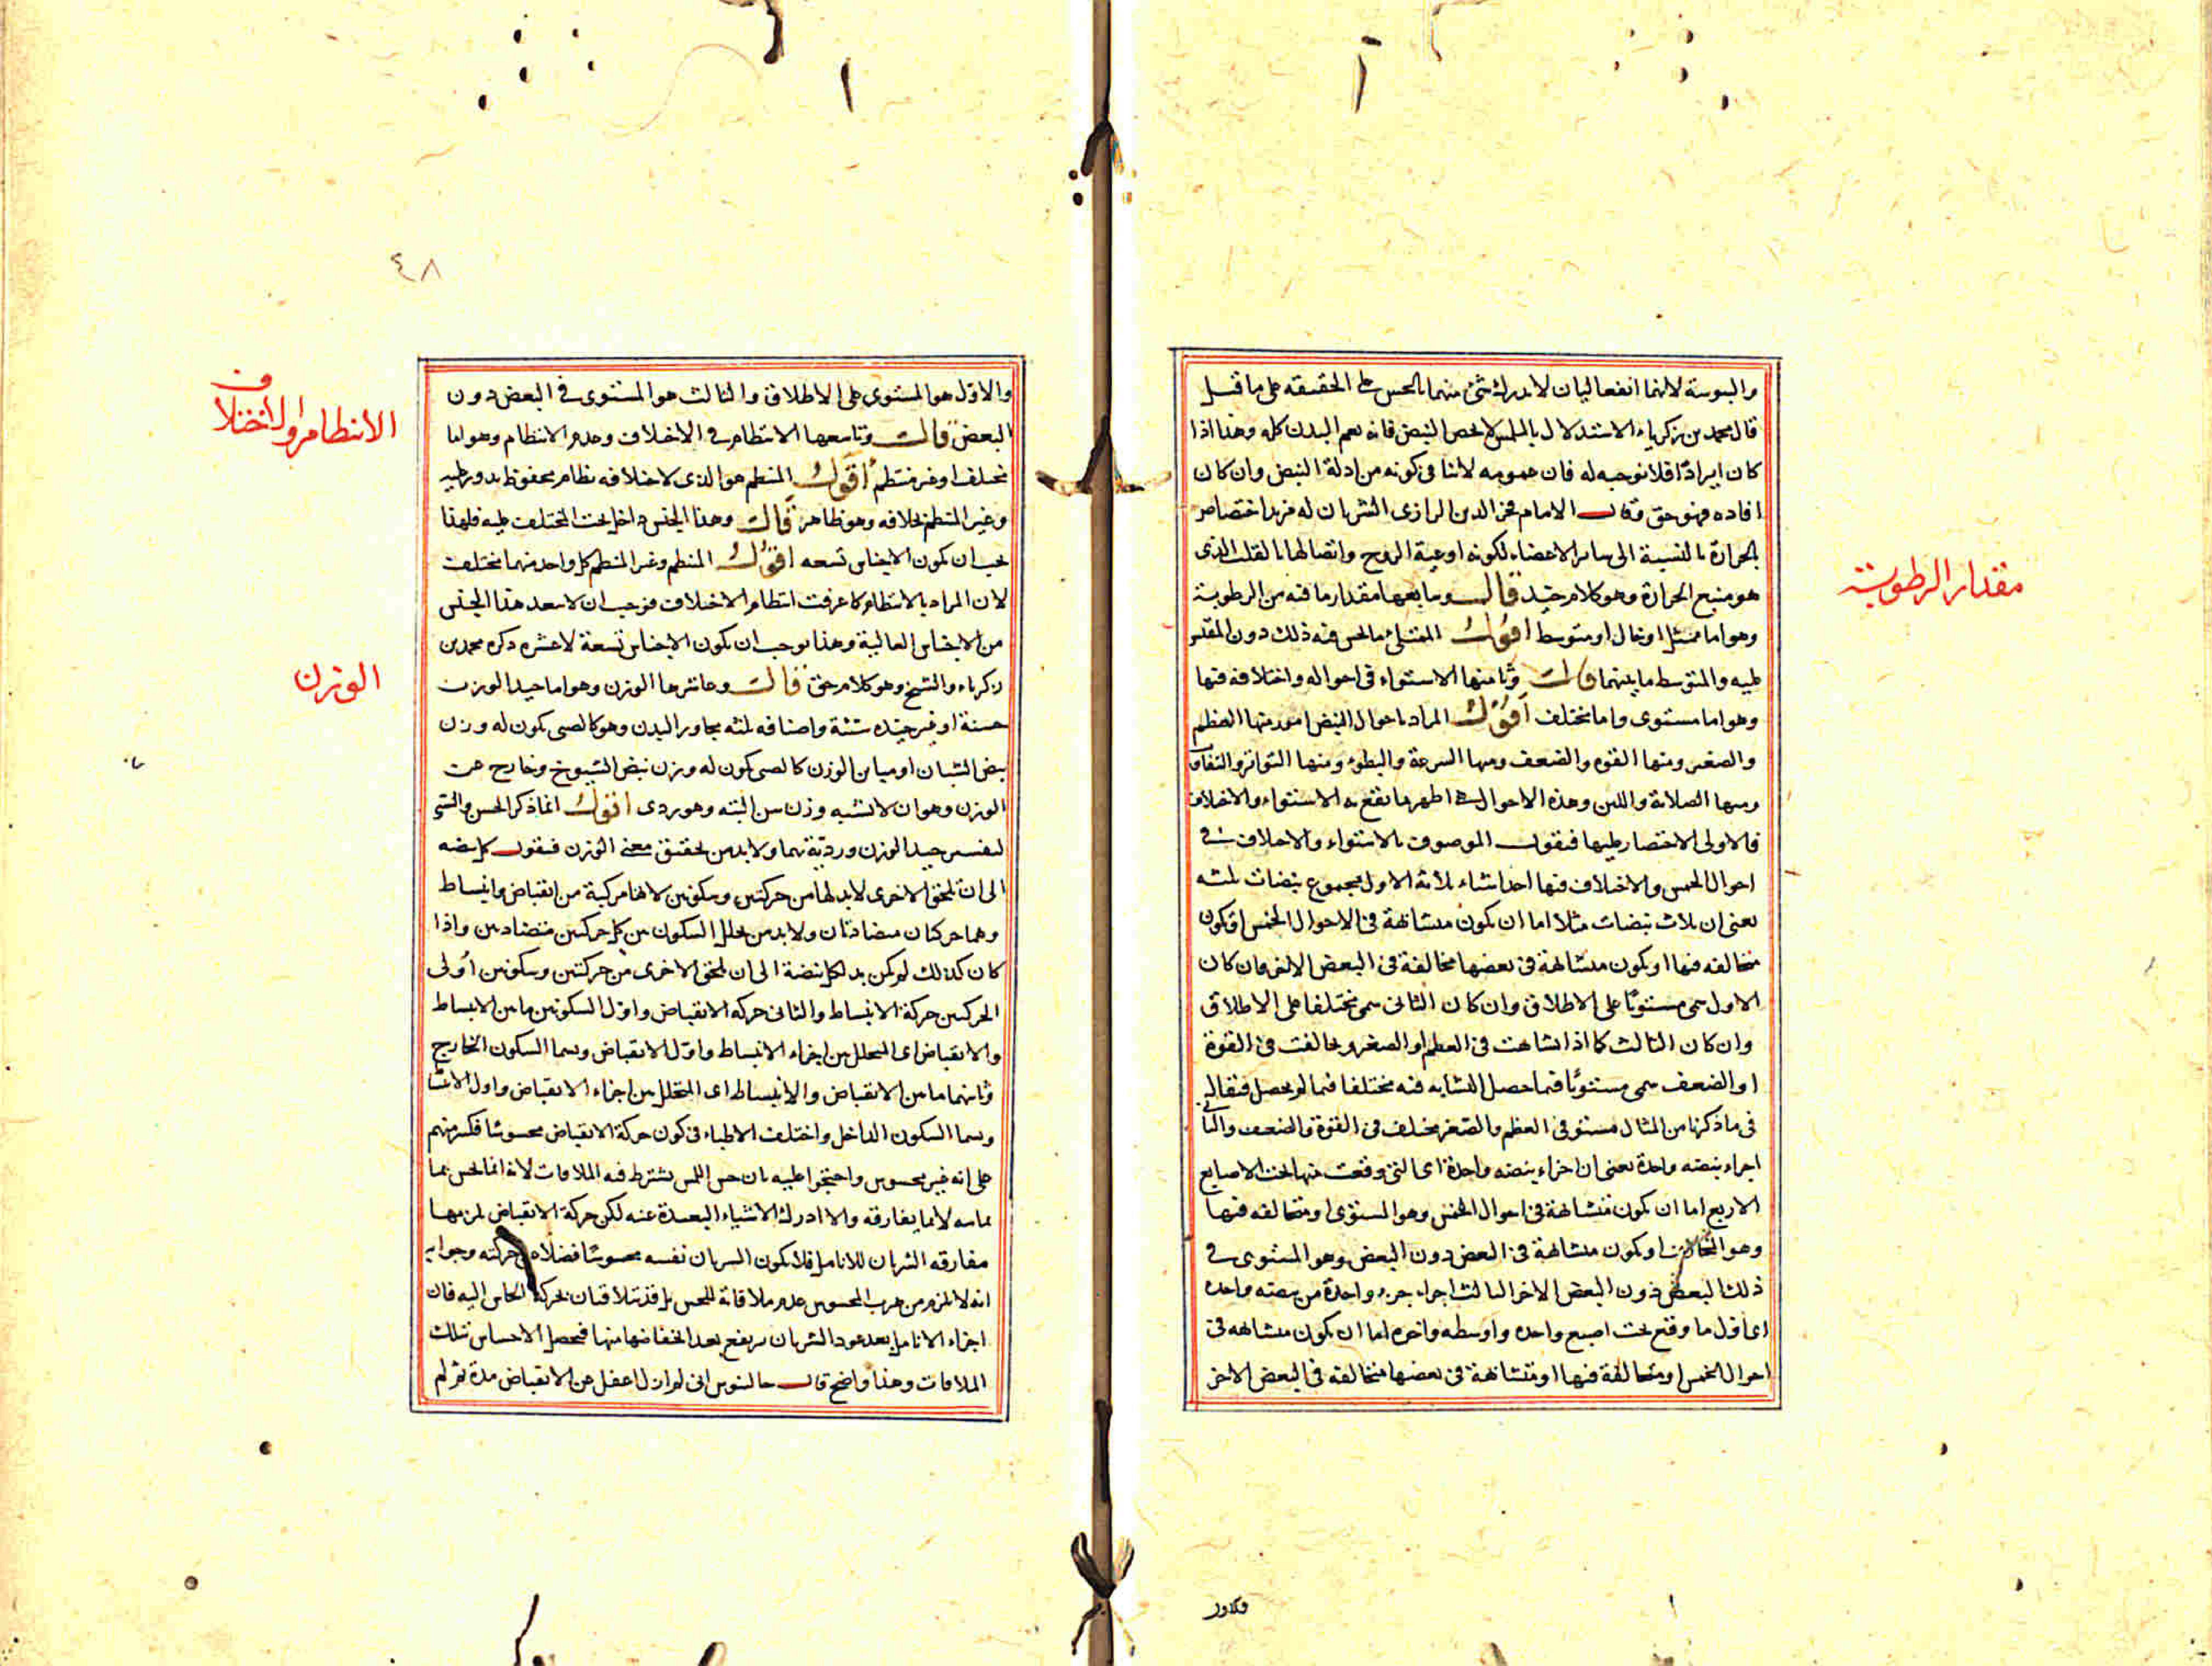 واليبوسة لانهما انفعاليان لا يدرك شئ منهما بالحس على الحقيقه على ما قيل
قال محمد بن زكرياء الاستدلال بالملمس لا يخص النبض فانه يعم البدن كله وهذا اذا
كان ايرادًا فلا توجيه له فان عمومه لا ينافى كونه من ادلة النبض وان كان
افاده فهو حق وقال الامام فخر الدين الرازى الشريان له مزيد اختصاص
بالحرارة بالنسبة الى سائر الاعضاء لكونه اوعية الروح واتصالها بالقلب الذى
هو منبع الحرارة وهو كلام جيد قال وسابعها مقدار ما فيه من الرطوبة
وهو اما ممتلئ او خال او متوسط اقول الممتلئ بالحس فيه ذلك دون
عليه والمتوسط ما بينهما قال وثامنها الاستواء فى احواله واختلافه فيها
وهو اما مستوى واما مختلف اقول المراد باحوال النبض امور منها العظم
والصغر ومنها القوه والضعف ومنها السرعة والبطوء ومنها التواتر والتفاوت
ومنها الصلابة واللين وهذه الاحوال اظهر ما يقع به الاستواء والاختلاف
فالاولى الاختصار عليها فنقول الموصوف بالاستواء والاختلاف فى
احوال الخمس والاختلاف فيها احد اشياء ثلاثة الاول مجموع نبضات ثلثه
يعنى ان ثلاث نبضات مثلا اما ان يكون متشابهة فى الاحوال الخمس او يكون
متخالفه فيها او يكون متشابهة فى بعضها مخالفة فى البعض الاخر فان كان
الاول سمى مستويًا على الاطلاق وان كان الثانى سمى مختلفا على الاطلاق
وان كان الثالث كما اذا تشابهت فى العظم او الصغر وتخالفت فى القوة
او الضعف سمى مستويًا فيما حصل التشابه فيه مختلفا فيما لم يحصل فيقال
فى ما ذكرنا من المثال مستو فى العظم والصغر مختلف فى القوة والضعف والثانى
اجزاء نبضه واحدة يعنى ان اجزاء نبضه واحدة اى التى وقعت منها تحت الاصابع
الاربع اما ان يكون متشابهة فى احوال الخمس وهو المستوى او متخالفه فيها
وهو او يكون متشابهة فى البعض دون البعض وهو المستوى فى
ذلك البعض دون البعض الاخر الثالث اجزاء جزء واحدة من نبضه واحده
اى اول ما وقع تحت اصبع واحده واوسطه واخره اما ان يكون متشابهه فى
احوال الخمس او متخالفة فيها او متشابهة فى بعضها متخالفه فى البعض الاخر
مقدار الرطوبة
٤٨
والاوّل هو المستوى على الاطلاق والثالث هو المستوى فى البعض دون
البعض قال وتاسعها الانتظام فى الاختلاف وعدم الانتظام وهو اما
مختلف او غير منتظم اقول المنتظم هو الذى لاختلافه نظام محفوظ يدور عليه
وغير المنتظم بخلافه وهو ظاهر قال وهذا الجنس داخل تحت المختلف عليه فلهذا
يجب ان يكون الاجناس تسعه اقول المنتظم وغير المنتظم كل واحد منهما مختلف
لان المراد بالانتظام كما عرفت انتظام الاختلاف فوجب ان لا يعد هذا الجنس
من الاجناس العالية وهذا يوجب ان يكون الاجناس تسعة لا عشره ذكره محمد بن
زكرياء والشيخ وهو كلام حق قال وعاشرها الوزن وهو اما جيد الوزن
حسنة او غير جيده سيئة واصنافه ثلثه مجاور البدن وهو كالصبى يكون له وزن
نبض الشبان او مباين الوزن كالصبى يكون له وزن نبض الشيوخ وخارج عن
الوزن وهو ان لا تشبه وزن سن البته وهو ردى اقول انما ذكر الحسن والسئ
لتفسير جيد الوزن ورديّه بهما ولا بد من تحقيق معنى الوزن فنقول كل نبضه
الى ان يلحق الاخرى لا بد لها من حركتين وسكونين لانها مركبة من انقباض وانبساط
وهما حركتان متضادتان ولا بد من تخلل السكون بين كل حركتين متضادين واذا
كان كذلك لم يكن بد لكل نبضة الى ان يلحق الاخرى من حركتين وسكونين اولى
الحركتين حركة الانبساط والثانى حركه الانقباض واوّل السكونين ما بين الانبساط
والانقباض اى المتخلل بين اجزاء الانبساط واوّل الانقباض وسما السكون الخارج
وثانيهما ما بين الانقباض والانبساط اى المتخلل بين اجزاء الانقباض واول
وسما السكون الداخل واختلف الاطباء فى كون حركة الانقباض محسوسًا فكثير منهم
على انه غير محسوس واحتجوا عليه بان حس اللمس يشترط فيه الملاقات لانه انما يحس بما
يماسه لا بما يفارقه والا ادرك الاشياء البعيدة عنه لكن حركة الانقباض يلزمها
مفارقه الشريان للانامل فلا يكون الشريان نفسه محسوسًا فضلا عن حركته وجوابه
انه لا يلزم من هرب المحسوس عدم ملاقاته للحس بل قد يتلاقيان بحركة الحاس اليه فان
اجزاء الانامل بعد عود الشريان يرتفع بعد انخفاضها منها فيحصل الاحساس بتلك
الملاقات وهذا واضح قال جالينوس انى لم ازل اغفل عن الانقباض مدة ثم لم
الانتظام والاختلاف
الوزن